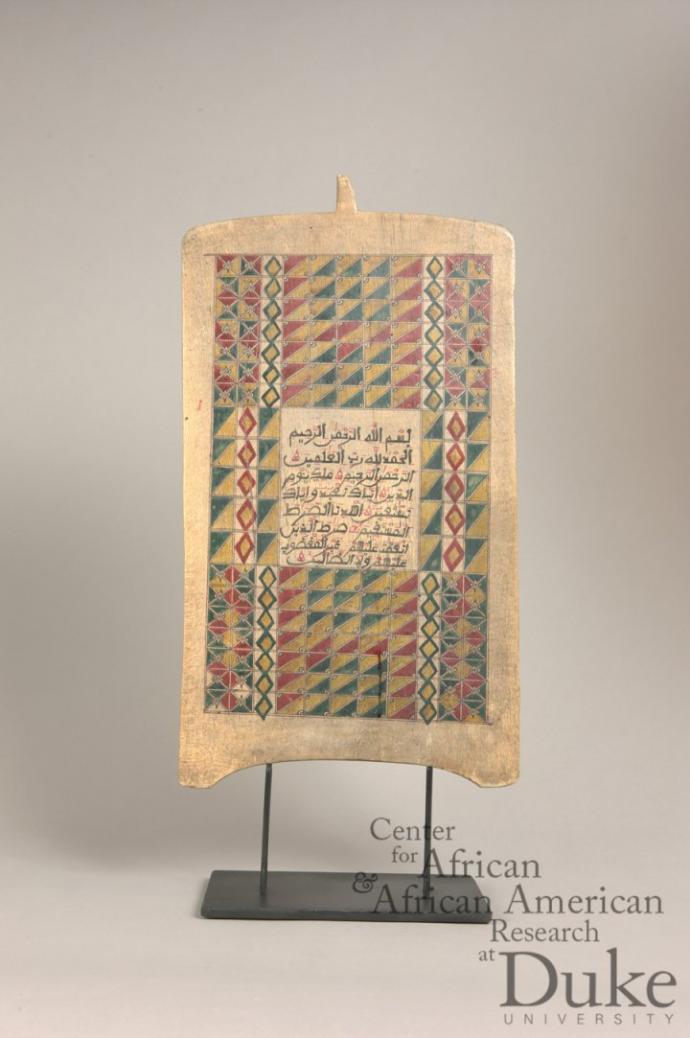 بسم الله الرحمن الرحيم
الحمد لله رب العلمين
الرحمن الرحيم ملك يوم
الدين اياك نعبد واياك
نستعين اهدنا الصرط
المستقيم صرط الذين
انعمت عليهم غير المغضوب
عليهم ولا الضالين
Center
for African
& African American
Research
at Duke
UNIVERSITY